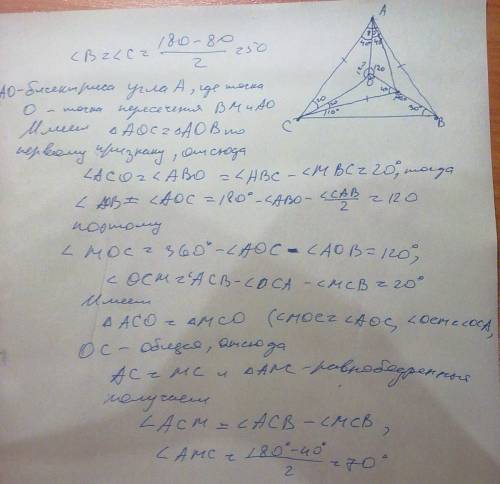 ∠B=∠C= (180-80)/2 =50
AO-биссектриса угла A, где точка
O - точка пересечения BM и AO
Имеем △AOC=△AOB по
первому признаку, отсюда
∠ACO=∠ABO = ∠ABC - ∠MBC=20°, тогда
∠AOB = ∠AOC = 180° - ∠ABO - ∠CAB/2 = 120
поэтому
∠MOC = 360° - ∠AOC - ∠AOB = 120°,
∠OCM = ∠ACB - ∠OCA - ∠MCB = 20°
Имеем
△ACO = △MCO (∠MOC = ∠AOC, ∠OCM = ∠OCA,
OC - общая, отсюда
AC = MC и △AMC - равнобедренный
получаем
∠ACM = ∠ACB - ∠MCB,
∠AMC = (180° - 40°)/2 = 70°
A
40 40
120 120
O
20 20 10°
40°
C B